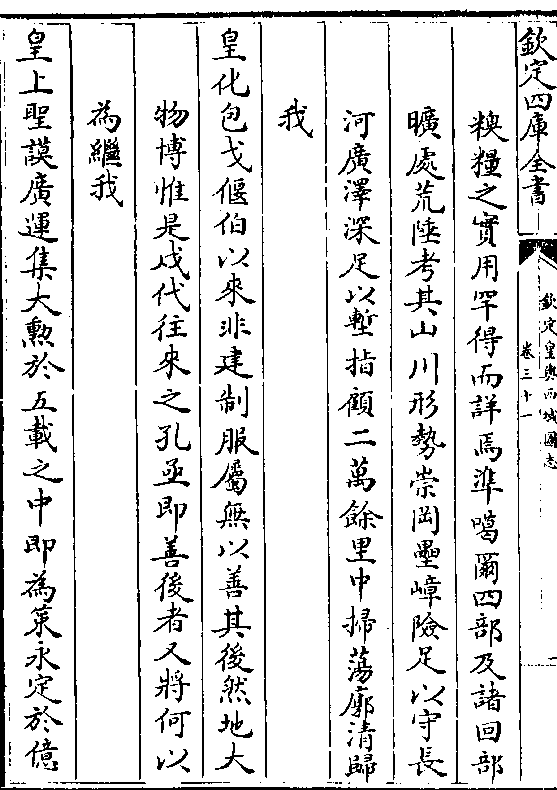 欽定四庫全書
欽定皇輿西域圖志
卷三十一
一
糗糧之實用罕得而詳焉準噶爾四部及諸回部
曠處荒陲考其山川形勢崇岡壘嶂險足以守長
河廣澤深足以塹指顧二萬餘里中掃蕩廓清歸
我
皇化包戈偃伯以來非建制服屬無以善其後然地大
物博惟是戍代往來之孔亟即善後者又將何以
為繼我
皇上聖謨廣運集大勲於五載之中即為䇿永定於億